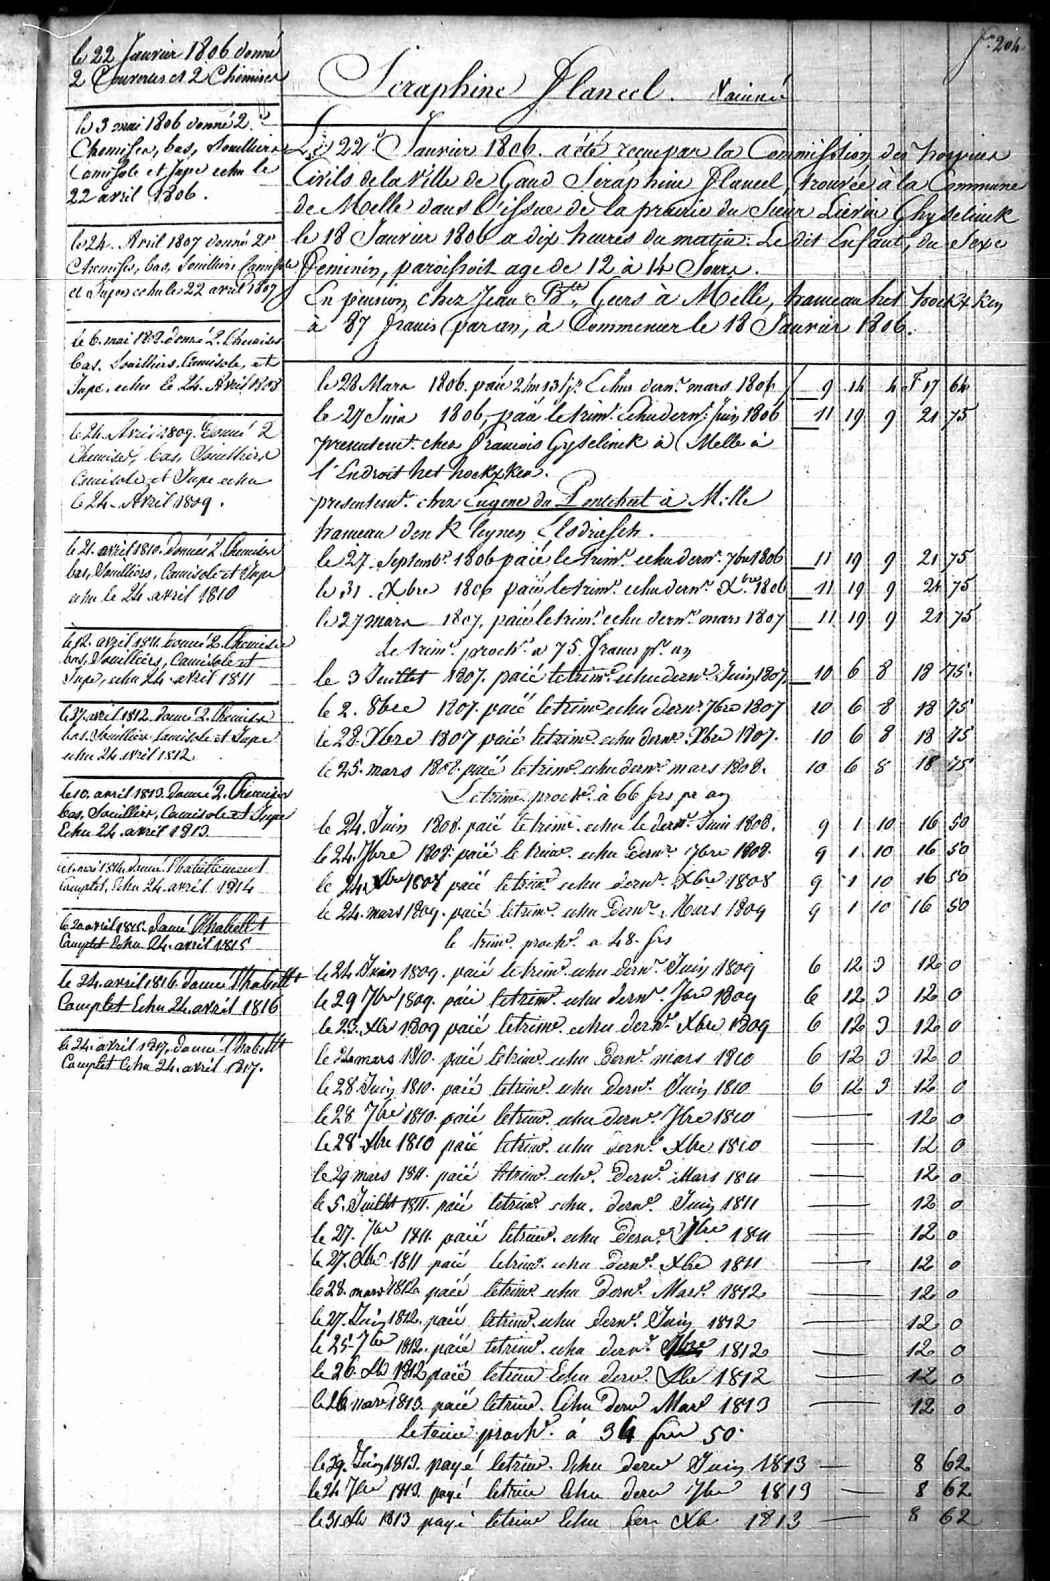 fo 204
Seraphine Plancel. Vaccinée
Le 22 Janvier 1806. a été reçue par la Commission des hospices
Civils de la Ville de Gand Seraphine Plancel, trouvée à la Commune
de Melle dans l'issue de la prairie du Sieur Lievin Ghyselinck
le 18 Janvier 1806 a dix heures du matin. Le dit Enfant, du Sexe
Feminin, paroissoit age de 12 à 14 Jours.
En pension chez Jean Bte Geers à Melle, hameau het hoekxken
à 87 francs par an, à Commencer le 18 Janvier 1806.
le 22 Janvier 1806 donné
2 Couvertes et 2 Chemises
le 3 mai 1806 donné 2
Chemises, bas, Souilliers
Camisole et Jupe echu le
22 avril 1806.
le 24. Avril 1807 donné 2
Chemises, bas, Souilliers Camisole
et Jupe echu le 22 avril 1807
le 6. mai 1808 donné 2. Chemises
bas. Souilliers. Camisole, et
Jupe. echu le 24. Avril 1808
le 24. Avril 1809. Donné 2
Chemises, bas, Souilliers
Camisole et Jupe echu
le 24. Avril 1809.
le 21. avril 1810. donné 2. Chemises
bas, Souilliers, Camisole et Jupe
echu le 24 avril 1810
le 12. avril 1811. donné 2. Chemises
bas, Souilliers, Camisole et
Jupe, echu 24. avril 1811
le 27. avril 1812. donné 2. Chemises
bas. Souilliers Camisole et Jupe
echu 24 avril 1812
le 10. avril 1813. donné 2. Chemises
bas, Souilliers, Camisole et Jupe
Echu 24. avril 1813.
mai 1814. donné l'habillement
Complet, Echu 24. avril 1814
le 20 avril 1815. donné l'habillt
Complet Echu 24. avril 1815
le 24. avril 1816 donné l'habillt
Complet Echu 24. avril 1816
le 24. avril 1817. donné l'habillt
Complet Echu 24. avril 1817.
le 28 Mars 1806. paié 2m 13 jrs Echus dernr mars 1806 9 14 4 F 17 64
le 27 Juin 1806, paié le trimr. Echu dernr Juin 1806 11 19 9 21 75
presentemt. chez Francois Gyselinck à Melle à
l'Endroit het hoekxken.
presentemt. chez Eugene du Pontchat à Melle
hameau den Kleynen Elsdriesch.
le 27. Septembr. 1806 paié le trimr. echu dernr. 7bre 1806 11 19 9 21 75
le 31. Xbre 1806 paié le trimr. echu dernr. Xbre 1806 11 19 9 21 75
le 27 mars 1807. paié le trimr. echu dernr. mars 1807 11 19 9 21 75
le trimr. prochn. a 75. francs pr an
le 3 Juillet 1807. paié le trimr. echu dernr. Juin 1807 10 6 8 18 75.
le 2. 8bre 1807. paié le trimr echu dernr. 7bre 1807 10 6 8 18 75
le 28. Xbre 1807 paié le trimr. echu dernr. Xbre 1807. 10 6 8 18 75
le 25. mars 1808. paié le trimr. echu dernr mars 1808. 10 6 8 18 75
Le trimr. prochn. à 66 frs pr an
le 24. Juin 1808. paié le trimr. echu le dernr. Juin 1808. 9 1 10 16 50
le 24. 7bre 1808. paié le trimr. echu dernr. 7bre 1808. 9 1 10 16 50
le 24. Xbre 1808 paié le trimr. echu dernr. Xbre 1808 9 1 10 16 50
le 24. mars 1809. paié le trimr. echu dernr. Mars 1809 9 1 10 16 50
le trimr. prochn. a 48. frs
le 24. Juin 1809. paié le trimr. echu dernr. Juin 1809 6 12 3 12 0
le 29 7bre 1809. paié le trimr. echu dernr. 7bre 1809 6 12 3 12 0
le 23. Xbre 1809 paié le trimr. echu dernr. Xbre 1809 6 12 3 12 0
le 24 mars 1810. paié le trimr. echu dernr. mars 1810 6 12 3 12 0
le 28 Juin 1810. paié le trimr. echu dernr. Juin 1810 6 12 3 12 0
le 28 7bre 1810. paié le trimr. echu dernr. 7bre 1810 12 0
le 28 Xbre 1810 paié le trimr. echu dernr. Xbre 1810 12 0
le 29 mars 1811. paié le trimr. echu. dernr. Mars 1811 12 0
le 5. Juillet 1811. paié le trimr. echu. dernr. Juin 1811 12 0
le 27. 7bre 1811. paié le trimr. echu dernr. 7bre 1811 12 0
le 27. Xbre 1811 paié le trimr. echu dernr. Xbre 1811 12 0
le 28. mars 1812 paié le trimr. echu dernr. Mars. 1812 12 0
le 27. Juin 1812. paié le trimr. echu dernr. Juin 1812 12 0
le 25. 7bre 1812. paié le trimr. echu dernr. 7bre 1812 12 0
le 26. Xbr 1812 paié le trimr Echu dernr. Xbre 1812 12 0
le 26. mars 1813. paié le trimr. Echu dernr Mars 1813 12 0
le trimr prochn. à 34 frcs 50.
le 29. Juin 1813. payé le trimr. Echu dernr Juin 1813 8 62
le 24 7bre 1813. payé le trimr Echu dernr 7bre 1813 8 62
le 31 Xbr 1813 payé le trimr Echu dern Xbr 1813 8 62